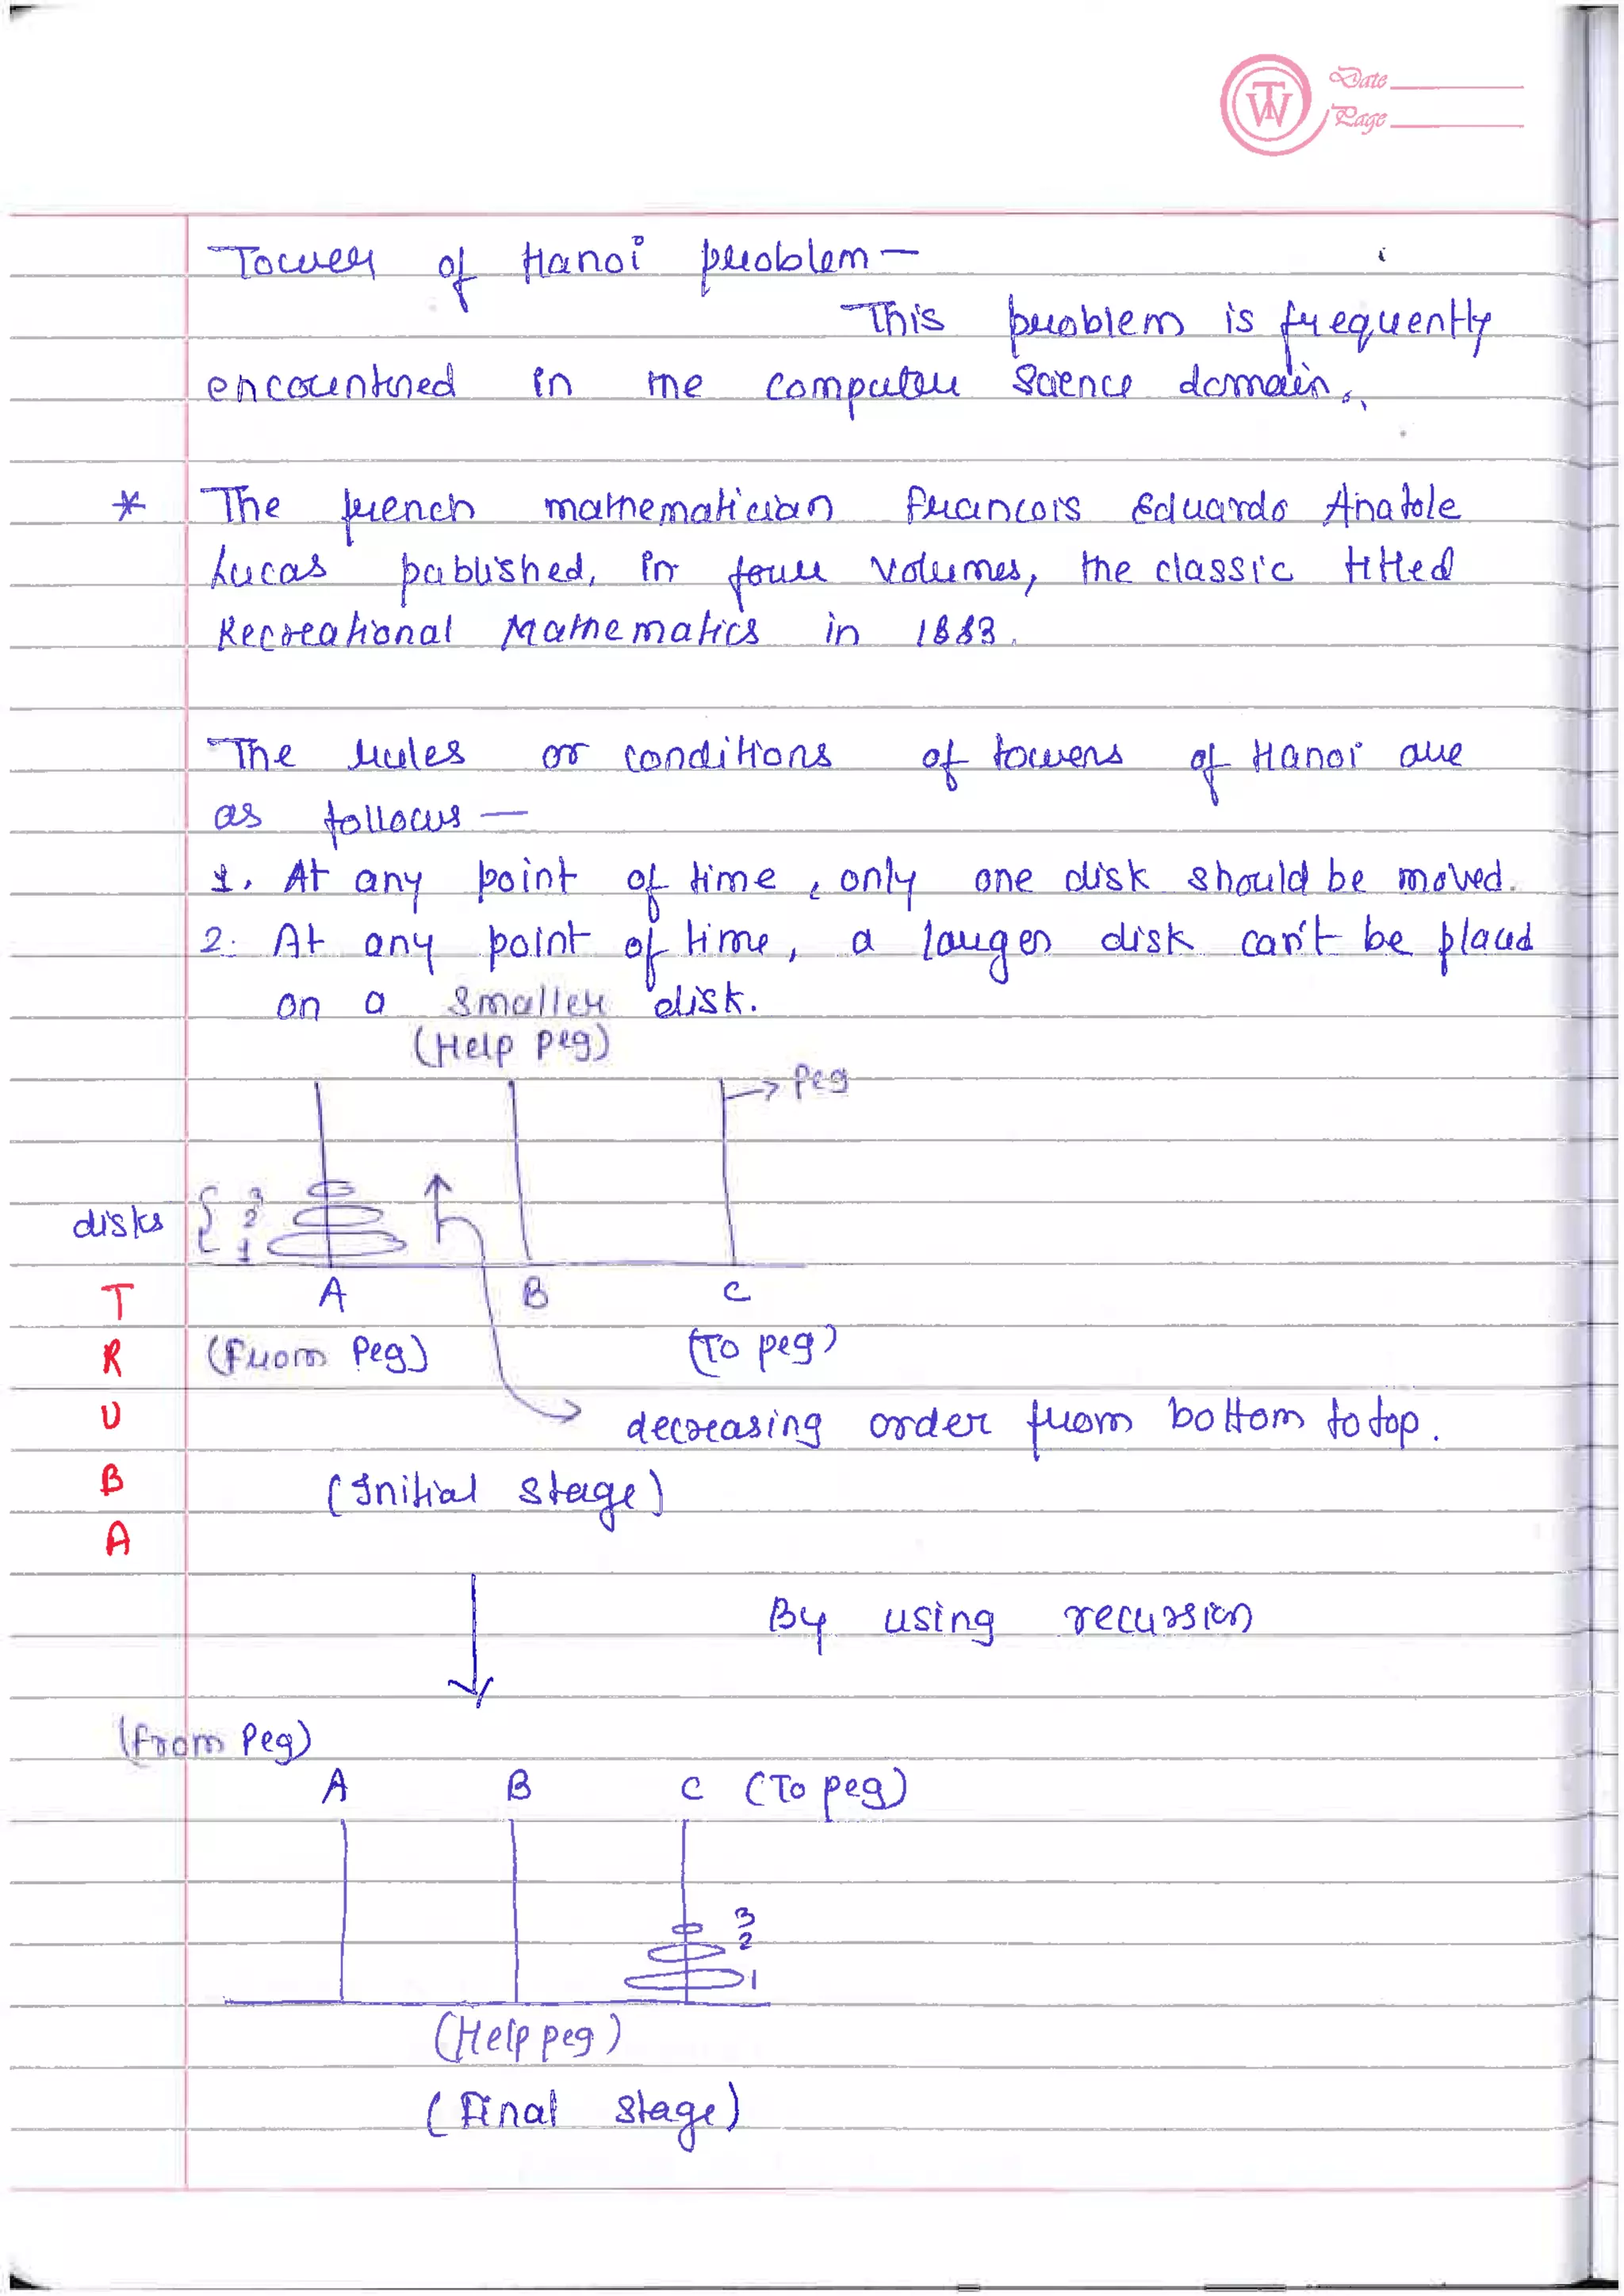 TW
Date
Page
Tower of Hanoi problem —
This problem is frequently
encountered in the computer Science domain.
* The french mathematician Francois Eduardo Anatole
Lucas published, in four volumes, the classic titled
Recreational Mathematics in 1883.
The rules or conditions of towers of Hanoi are
as follows —
1. At any point of time, only one disk should be moved.
2. At any point of time, a larger disk can't be placed
on a smaller disk.
(Help peg)
→ Peg
3
disks { 2
1
A B C
(From Peg) (To peg)
decreasing order from bottom to top.
(Initial stage)
T
R
U
B
A
By using recursion
(From Peg)
A B C (To peg)
3
2
1
(Help peg)
(Final stage)